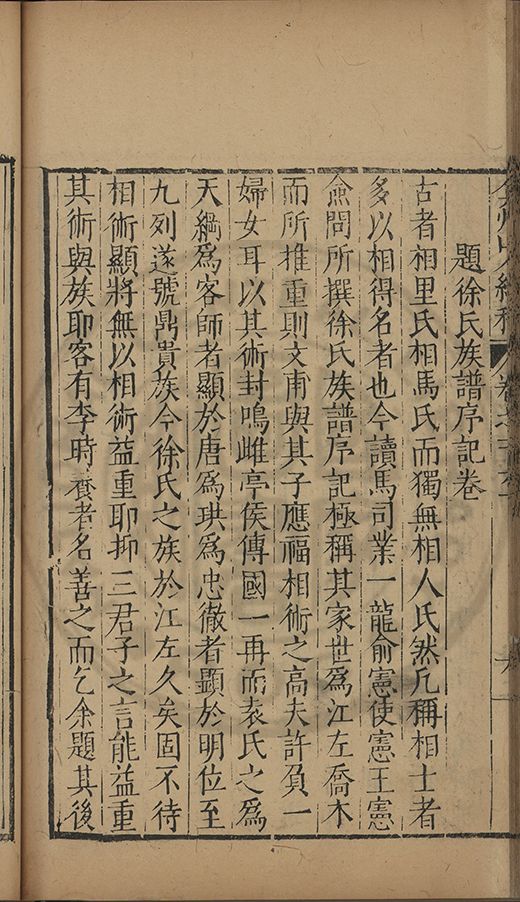 題徐氏族譜序記卷
古者相里氏相馬氏而獨無相人氏然凢稱相士者
多以相得名者也今讀馬司業一龍俞憲使憲王憲
僉問所撰徐氏族譜序記極稱其家世爲江左喬木
而所推重則文甫與其子應福相術之高夫許負一
婦女耳以其術封鳴雌亭侯傳國一再而袁氏之爲
天綱爲客師者顯於唐爲珙爲忠徹者顯於明位至
九列遂號鼎貴族今徐氏之族於江左久矣固不待
相術顯將無以相術益重耶抑三君子之言能益重
其術與族耶客有李時養者名善之而乞余題其後